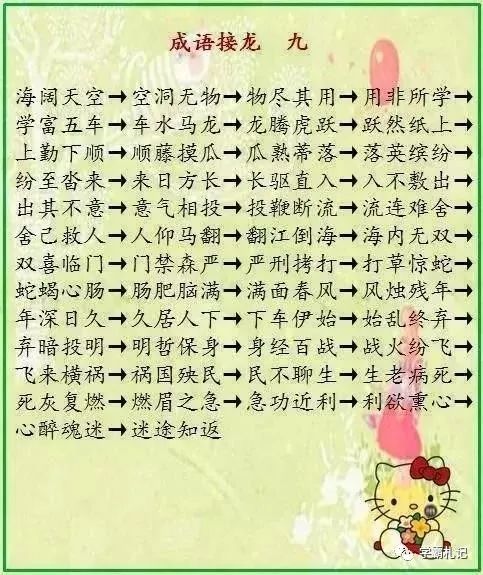 成语接龙 九
海阔天空→空洞无物→物尽其用→用非所学→
学富五车→车水马龙→龙腾虎跃→跃然纸上→
上勤下顺→顺藤摸瓜→瓜熟蒂落→落英缤纷→
纷至沓来→来日方长→长驱直入→入不敷出→
出其不意→意气相投→投鞭断流→流连难舍→
舍己救人→人仰马翻→翻江倒海→海内无双→
双喜临门→门禁森严→严刑拷打→打草惊蛇→
蛇蝎心肠→肠肥脑满→满面春风→风烛残年→
年深日久→久居人下→下车伊始→始乱终弃→
弃暗投明→明哲保身→身经百战→战火纷飞→
飞来横祸→祸国殃民→民不聊生→生老病死→
死灰复燃→燃眉之急→急功近利→利欲熏心→
心醉魂迷→迷途知返
学霸札记